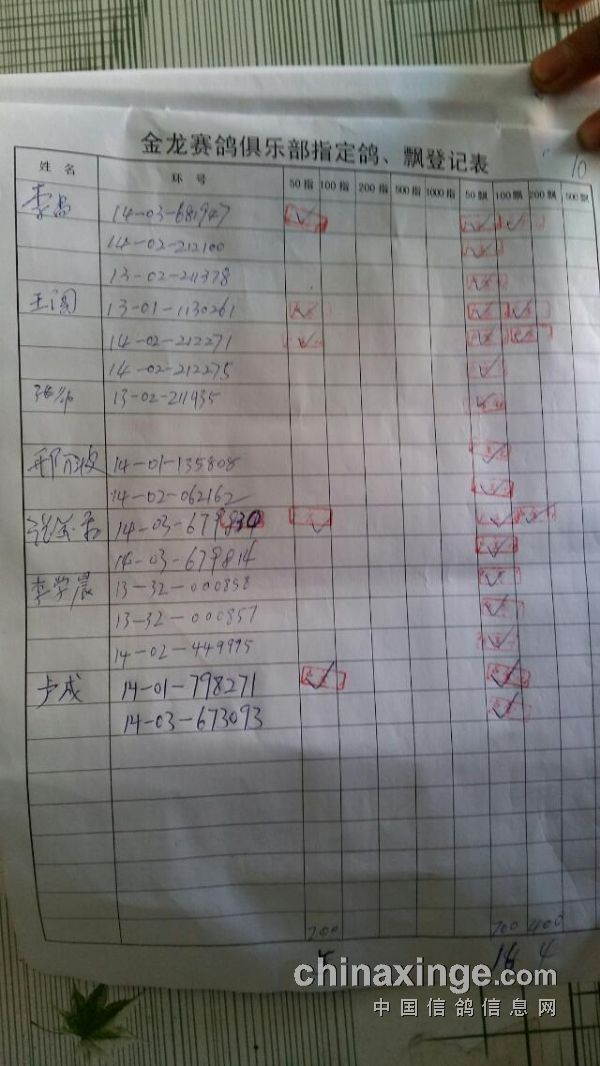 10
金龙赛鸽俱乐部指定鸽、飘登记表
姓名 环号 50指 100指 200指 500指 1000指 50飘 100飘 200飘 500飘
14-03-681947
14-02-212100
13-02-211378
13-01-1130261
14-02-212271
14-02-212275
13-02-211935
14-01-135808
14-02-062162
14-03-679834
14-03-679814
李学晨 13-32-000858
13-32-000857
14-02-449995
卢成 14-01-798271
14-03-673093
200 700 400
5 16 4
chinaxinge.com
中国信鸽信息网